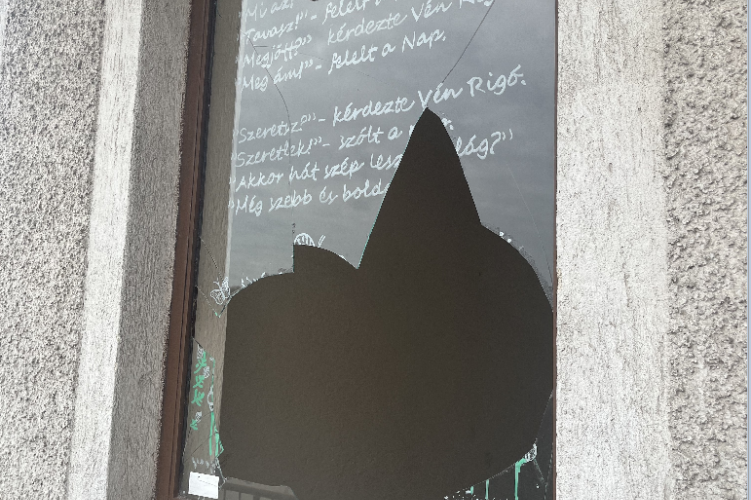 "Mi az
"Tavasz!" - felelt
"Megjött?" - kérdezte Vén Rig
"Meg ám!" - felelt a Nap.
"Szeretsz?" - kérdezte Vén Rigó.
"Szeretlek!" - szólt a
"Akkor hát szép lesz lág?"
"Még szebb és bold